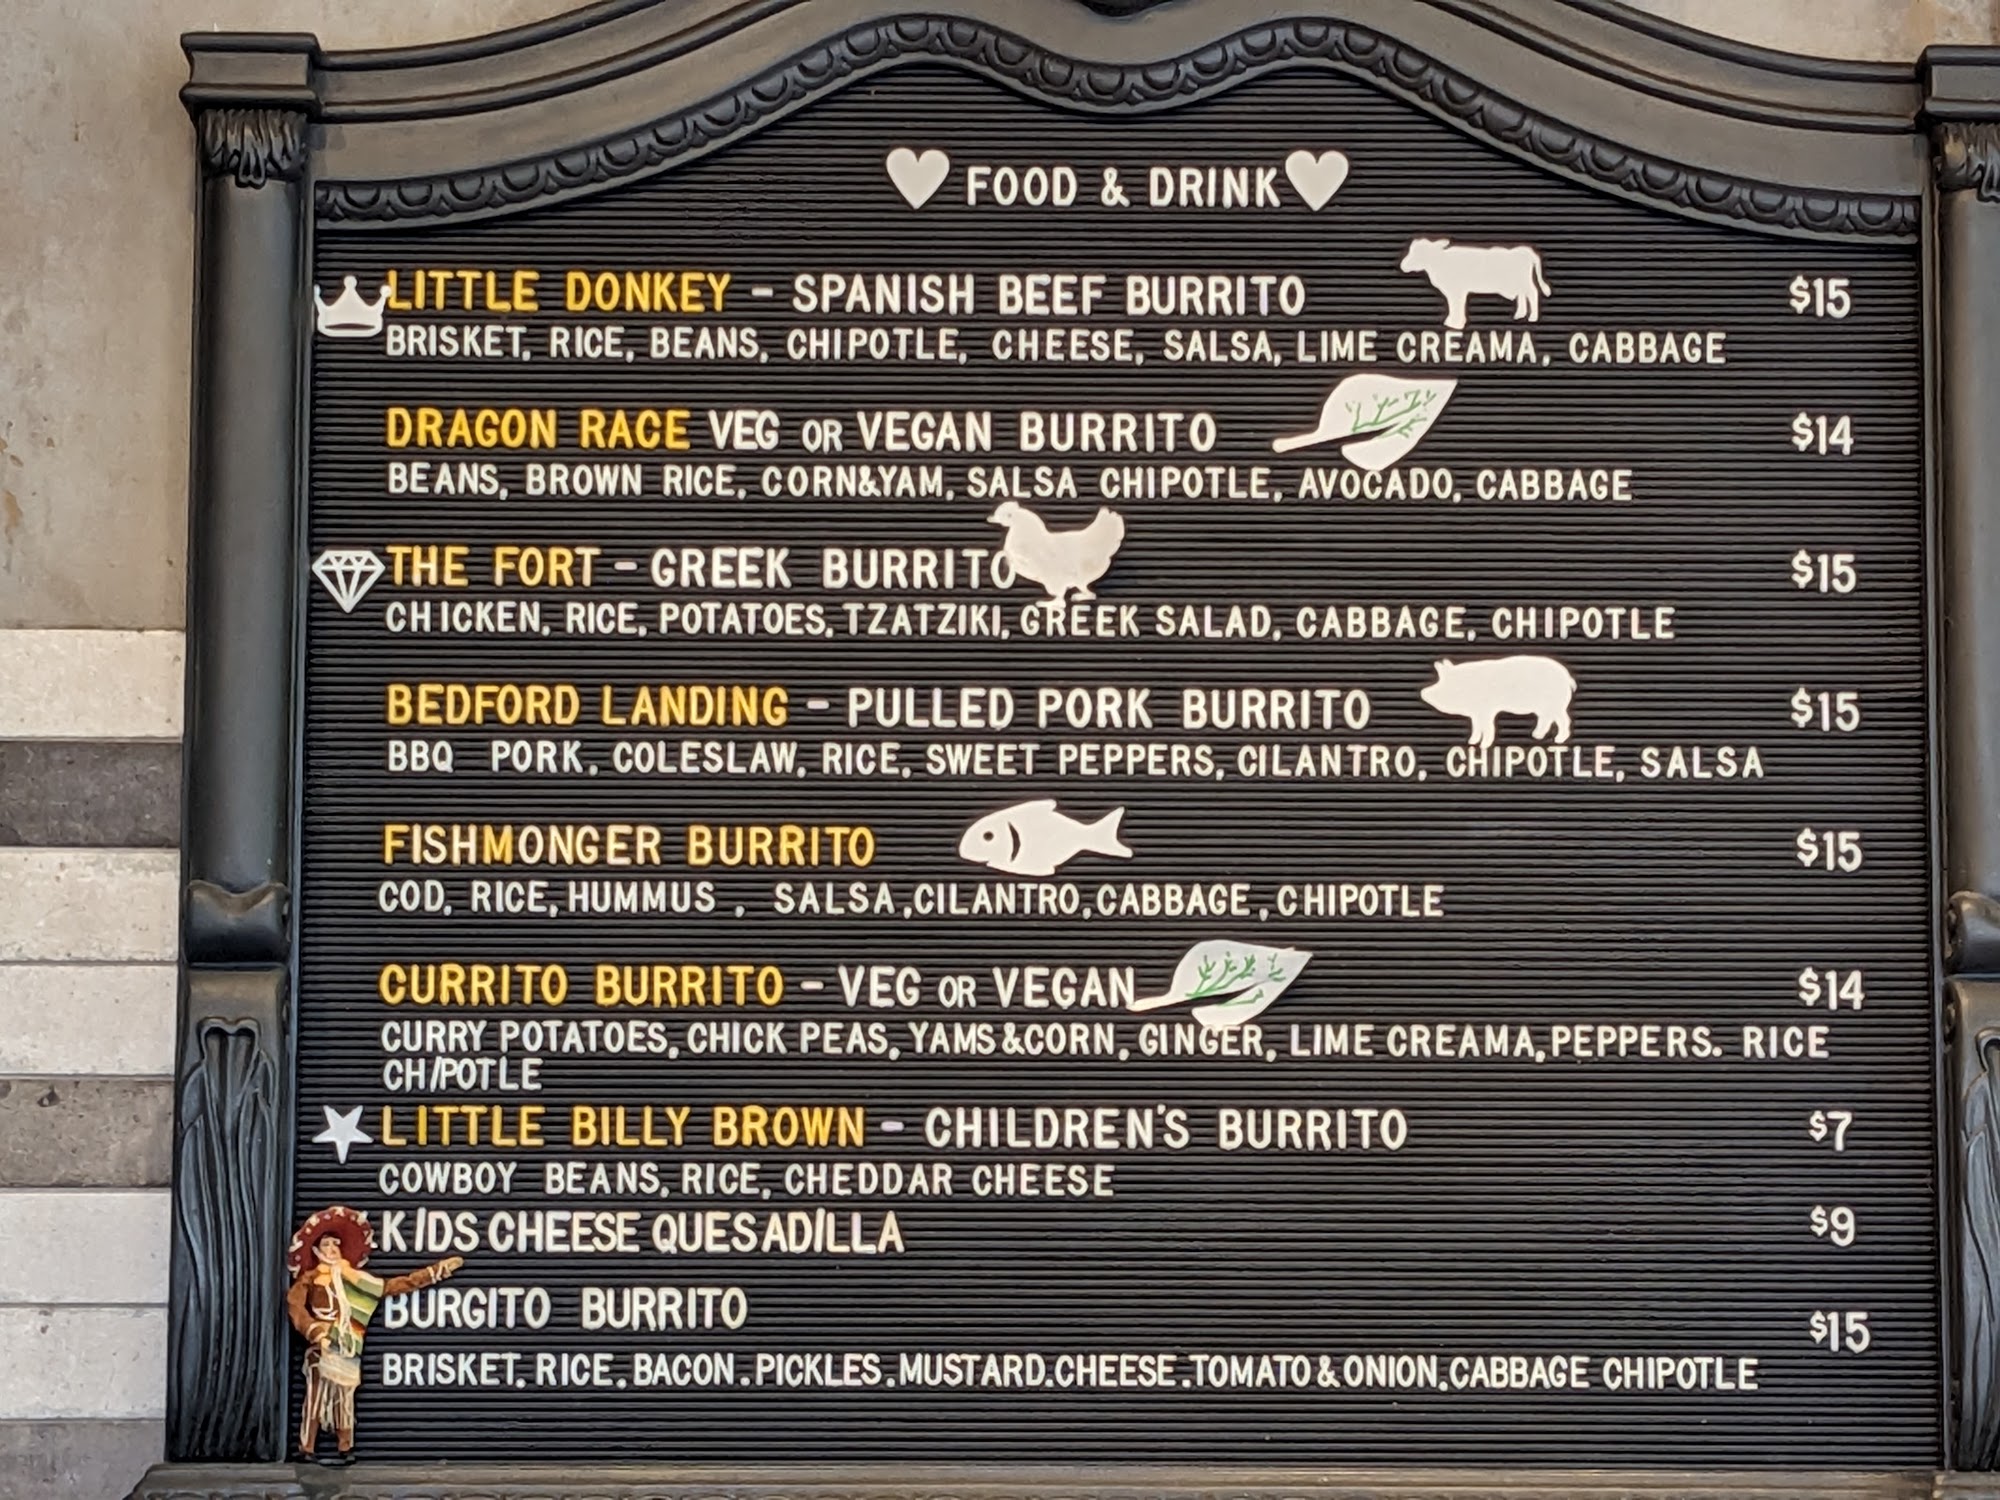 FOOD & DRINK
LITTLE DONKEY - SPANISH BEEF BURRITO $15
BRISKET, RICE, BEANS, CHIPOTLE, CHEESE, SALSA, LIME CREAMA, CABBAGE
DRAGON RACE VEG OR VEGAN BURRITO $14
BEANS, BROWN RICE, CORN&YAM, SALSA CHIPOTLE, AVOCADO, CABBAGE
THE FORT - GREEK BURRITO $15
CHICKEN, RICE, POTATOES, TZATZIKI, GREEK SALAD, CABBAGE, CHIPOTLE
BEDFORD LANDING - PULLED PORK BURRITO $15
BBQ PORK, COLESLAW, RICE, SWEET PEPPERS, CILANTRO, CHIPOTLE, SALSA
FISHMONGER BURRITO $15
COD, RICE, HUMMUS , SALSA,CILANTRO,CABBAGE,CHIPOTLE
CURRITO BURRITO - VEG OR VEGAN $14
CURRY POTATOES, CHICK PEAS, YAMS&CORN, GINGER, LIME CREAMA,PEPPERS. RICE
CH/POTLE
LITTLE BILLY BROWN - CHILDREN'S BURRITO $7
COWBOY BEANS, RICE, CHEDDAR CHEESE
K/DS CHEESE QUESAD/LLA $9
BURGITO BURRITO $15
BRISKET, RICE, BACON.PICKLES.MUSTARD.CHEESE.TOMATO&ONION,CABBAGE CHIPOTLE